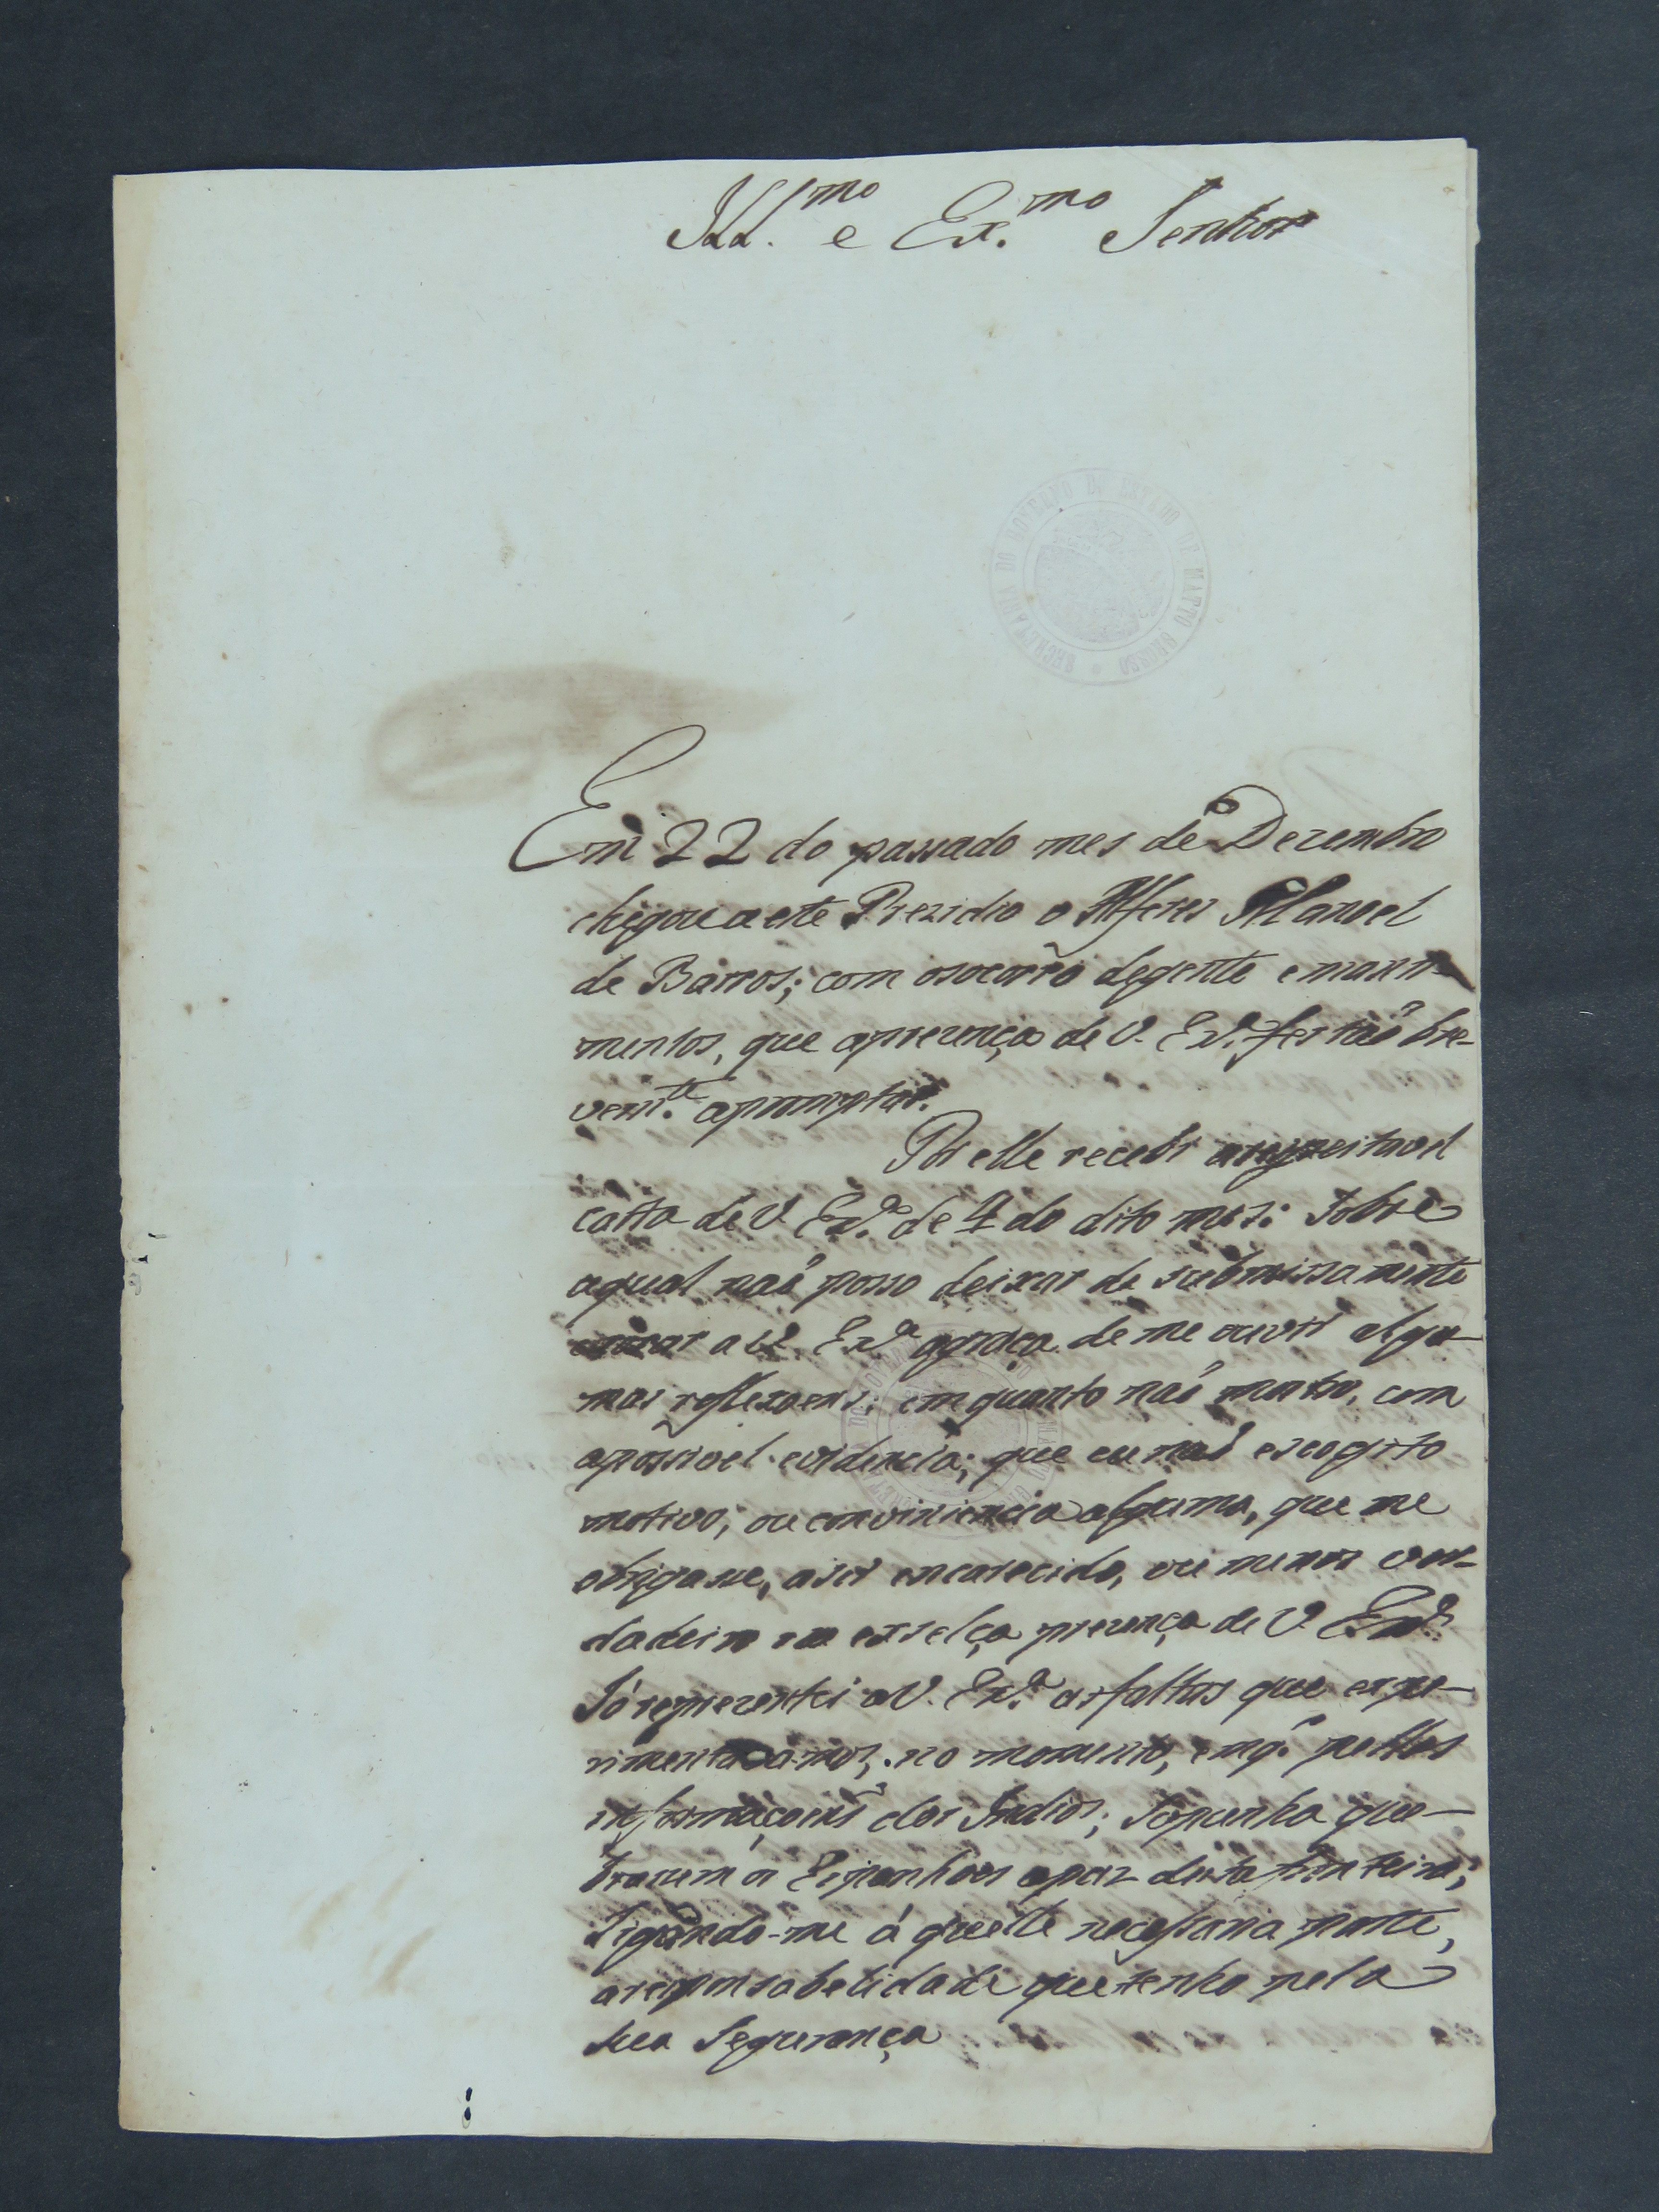 Ill.mo e Ex.mo Senhor
SECRETARIA DO GOVERNO DO ESTADO DE MATTO GROSSO
Em 22 do passado mes de Dezembro
chegou a este Prezidio o Alferes Manoel
de Barros; com osocorro degente e manti-
mentos, que aprezença de V. Ex.ª fes taõ bre-
vem.te apromptar.
Por elle recebi arespeitavel
carta de V. Ex.ª de 4 do dito mes: sobre
aqual naõ posso deixar de submissamente
a V. Ex.ª agraça de me ouvir algu-
mas reflexoens; emquanto naõ mostro, com
apossivel evidencia; que eu naõ escogito
motivo, ou conviniencia alguma, que me
obrigasse, aser encarecido, ou menos ver-
dadeiro na exselça prezença de V. Ex.ª
Só reprezentei a V. Ex.ª asfaltas que expe-
rimentavamos, no momento, emq.e pellas
informaçoens dos Indios; Sopunha que-
brarem os Espanhoes apaz desta fronteira;
Ligando-me á quella necessaria parte,
aresponsabelidade quetenho pela
sua Segurança